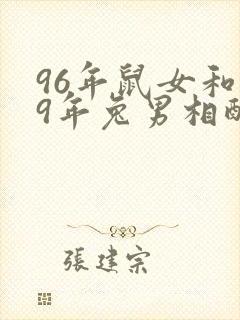 96年鼠女和
9年兔男相酉
張建宗